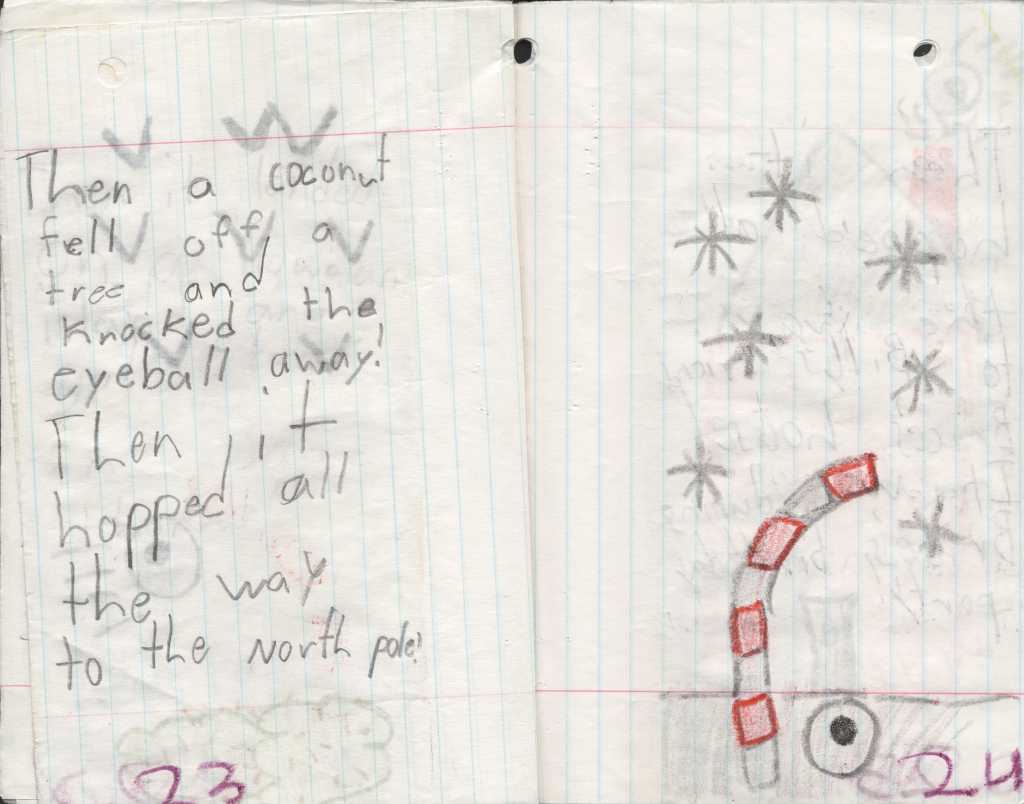 Then a coconut
fell off a
tree and
knocked the
eyeball away!
Then, it
hopped all
the way
to the North pole!
23
24